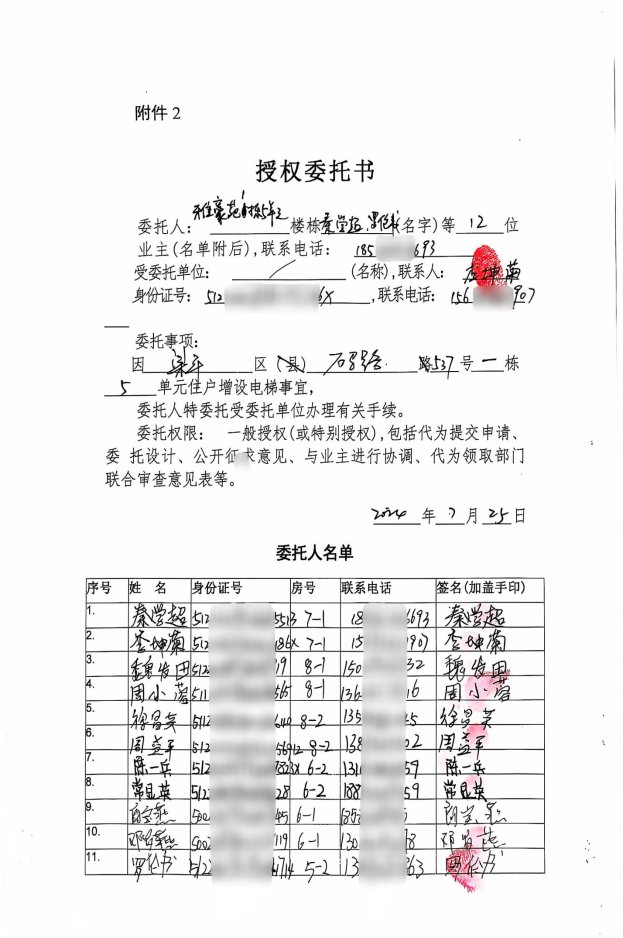 附件2
授权委托书
委托人: 楼栋秦学超、罗伦书(名字)等 12 位
业主(名单附后),联系电话: 185 693
受委托单位: / (名称),联系人: 李坤菊
身份证号: 512 6X ,联系电话: 156 907
委托事项:
因 梁平 区(县) 路537号 一 栋
5 单元住户增设电梯事宜,
委托人特委托受委托单位办理有关手续。
委托权限: 一般授权(或特别授权),包括代为提交申请、
委 托设计、公开征求意见、与业主进行协调、代为领取部门
联合审查意见表等。
2024 年 7 月 25 日
委托人名单
序号 姓 名 身份证号 房号 联系电话 签名(加盖手印)
1. 秦学超 512 5513 7-1 18 6693 秦学超
2. 李坤菊 512 186X 7-1 15 1907 李坤菊
3. 魏发田 512 19 8-1 150 32 魏发田
4. 周小蓉 511 565 8-1 136 16 周小蓉
5. 徐昌英 5112 640 8-2 135 45 徐昌英
6. 周孟平 512 56912 8-2 138 02 周孟平
7. 陈一兵 512 7823X 6-2 1310 59 陈一兵
8. 常显英 512 28 6-2 188 59 常显英
9. 500 45 6-1 185
10. 5002 119 6-1 130 8
11. 罗伦书 5122 1714 5-2 13 363 罗伦书